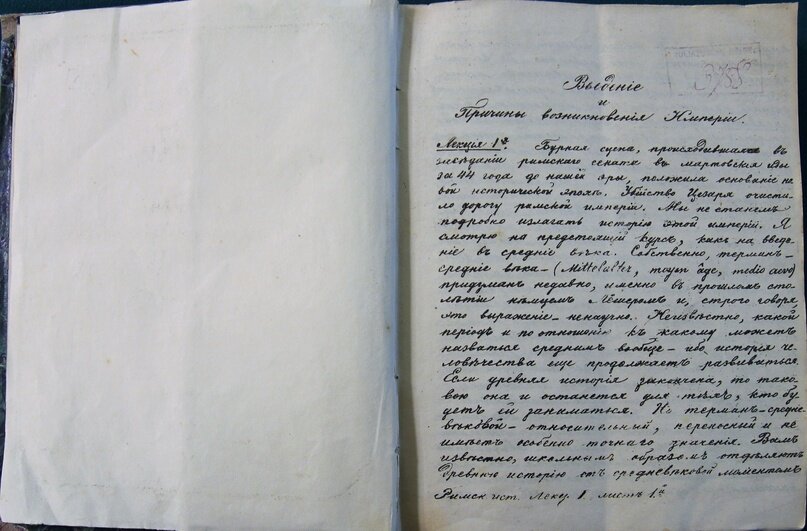 Введеніе
и
Причины возникновенія Имперіи.
Лекція 1я. Бурная сцена, происходившая въ
засѣданіи римскаго сената въ мартовскія Иды
за 44 года до нашей эры, положила основаніе но
вой исторической эпохѣ. Убійство Цезаря очисти-
ло дорогу римской имперіи. Мы не станемъ
подробно излагать исторію этой имперіи. Я
смотрю на предстоящій курсъ, какъ на введе-
ніе въ средніе вѣка. Собственно, терминъ-
средніе вѣка-(Mittelalter, moyen âge, medio aevo)
придуманъ недавно, именно въ прошломъ сто-
лѣтіи нѣмцемъ и, строго говоря,
это выраженіе-ненаучно. Неизвѣстно, какой
періодъ и по отношенію къ какому можетъ
назваться среднимъ вообще-ибо исторія че-
ловѣчества еще продолжаетъ развиваться.
Если древняя исторія закончена, то тако-
вою она и останется для тѣхъ, кто бу-
детъ ей заниматься. Но терминъ-средне-
вѣковой-относительный, переносный и не
имѣетъ особенно точнаго значенія. Вамъ
извѣстно, школьнымъ образомъ отдѣляютъ
древнюю исторію отъ средневѣковой моментомъ
Римск. ист. Лекц. 1. листъ 1й